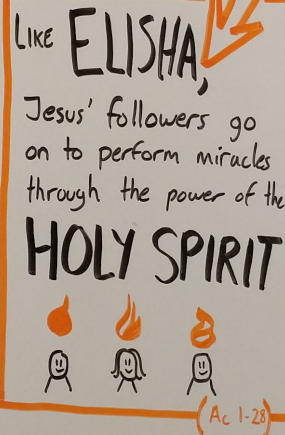 LIKE ELISHA,
Jesus' followers go
on to perform miracles
through the power of the
HOLY SPIRIT
(Ac 1-28)